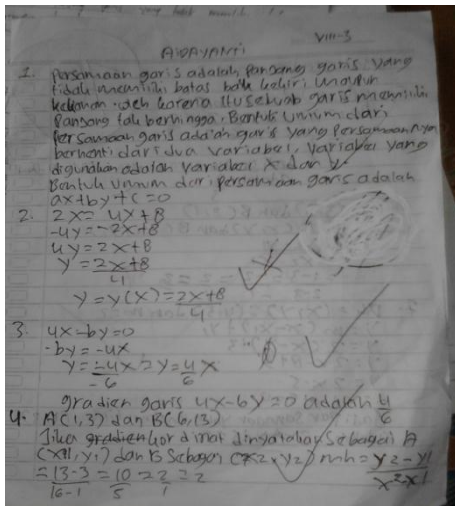 VIII-3
AWAYANTI
1. Persamaan garis adalah panjang garis yang
tidak memiliki batas baik kekiri maupun
kekanan. oleh karena itu sebuah garis memiliki
Panjang tak berhingga. Bentuk Umum dari
Persamaan garis adalah garis yang persamaannya
berhenti dari dua variabel, variabel yang
digunakan adalah variabel x dan y.
Bentuk Umum dari persamaan garis adalah
ax+by+c=0
2. 2x = 4x+8
-4y=-2x+8
4y = 2x+8
y = 2x+8/4
y = y(x) = 2x+8/4
3. 4x-6y=0
-6y = -4x
y = -4x/-6 = y = 4/6 x
gradien garis 4x-6y=0 adalah 4/6
4. A(1,3) dan B(6,13)
Jika kordinat dinyatakan sebagai A
(x1,y1) dan B sebagai (x2,y2) mh = y2-y1/x2x1
= 13-3/16-1 = 10/5 = 2/1 = 2